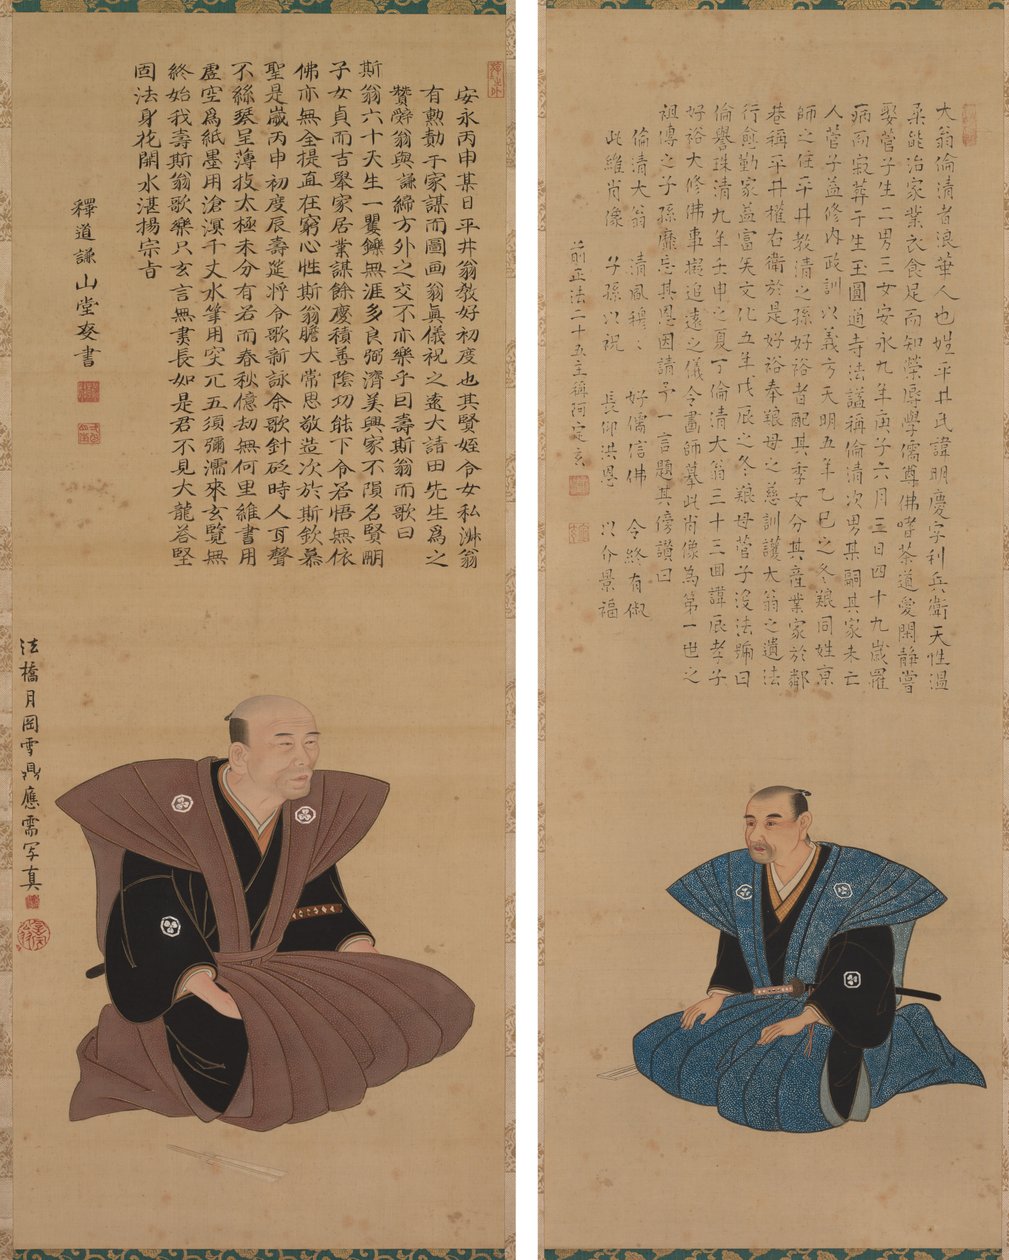 大翁倫清者浪華人也姓平井氏諱明慶字利兵衛天性温
柔能治家業衣食足而知榮辱學儒尊佛嗜茶道愛閑静嘗
娶菅子生二男三女安永九年庚子六月三日四十九歳罹
病而寂葬于生玉圓通寺法謚稱倫清次男某嗣其家未亡
人菅子益修内政訓以義方天明五年乙巳之冬孃同姓京
師之住平井教清之孫好裕者配其季女分其産業家於鄰
巷稱平井權右衛於是好裕奉孃母之慈訓護大翁之遺法
行愈勤家益富矣文化五年戊辰之冬孃母菅子没法號曰
倫譽珠清九年壬申之夏丁倫清大翁三十三回諱辰孝子
好裕大修佛事擬追遠之儀令畫師摹此肖像為第一世之
祖傳之子孫靡忘其恩因請予一言題其傍讃曰
倫清大翁 清風穆〻 好儒信佛 令終有俶
此維肖像 子孫以祝 長仰洪恩 以介景福
前正法二十五主稱阿定玄
安永丙申某日平井翁教好初度也其賢姪令女私淑翁
有勲勣于家謀而圖画翁眞儀祝之遠大請田先生爲之
賛辤翁與謙締方外之交不亦樂乎曰壽斯翁而歌曰
斯翁六十天生一矍鑠無涯多良弼濟美興家不隕名賢嗣
子女貞而吉舉家居業謀餘慶積善陰功能下令名悟無依
佛亦無全提直在窮心性斯翁膽大常思敬造次於斯欽慕
聖是歳丙申初度辰壽筵將令歌新詠余歌針砭時人耳聲
不絲琴呈薄技太極未分有若而春秋億劫無何里維書用
虚空爲紙墨用滄溟千丈水筆用突兀五須彌濡來玄覽無
終始我壽斯翁歌樂只玄言無長如是君不見大龍答堅
固法身花開水湛揚宗旨
釋道謙山堂書
法橋月岡雪鼎應需写真